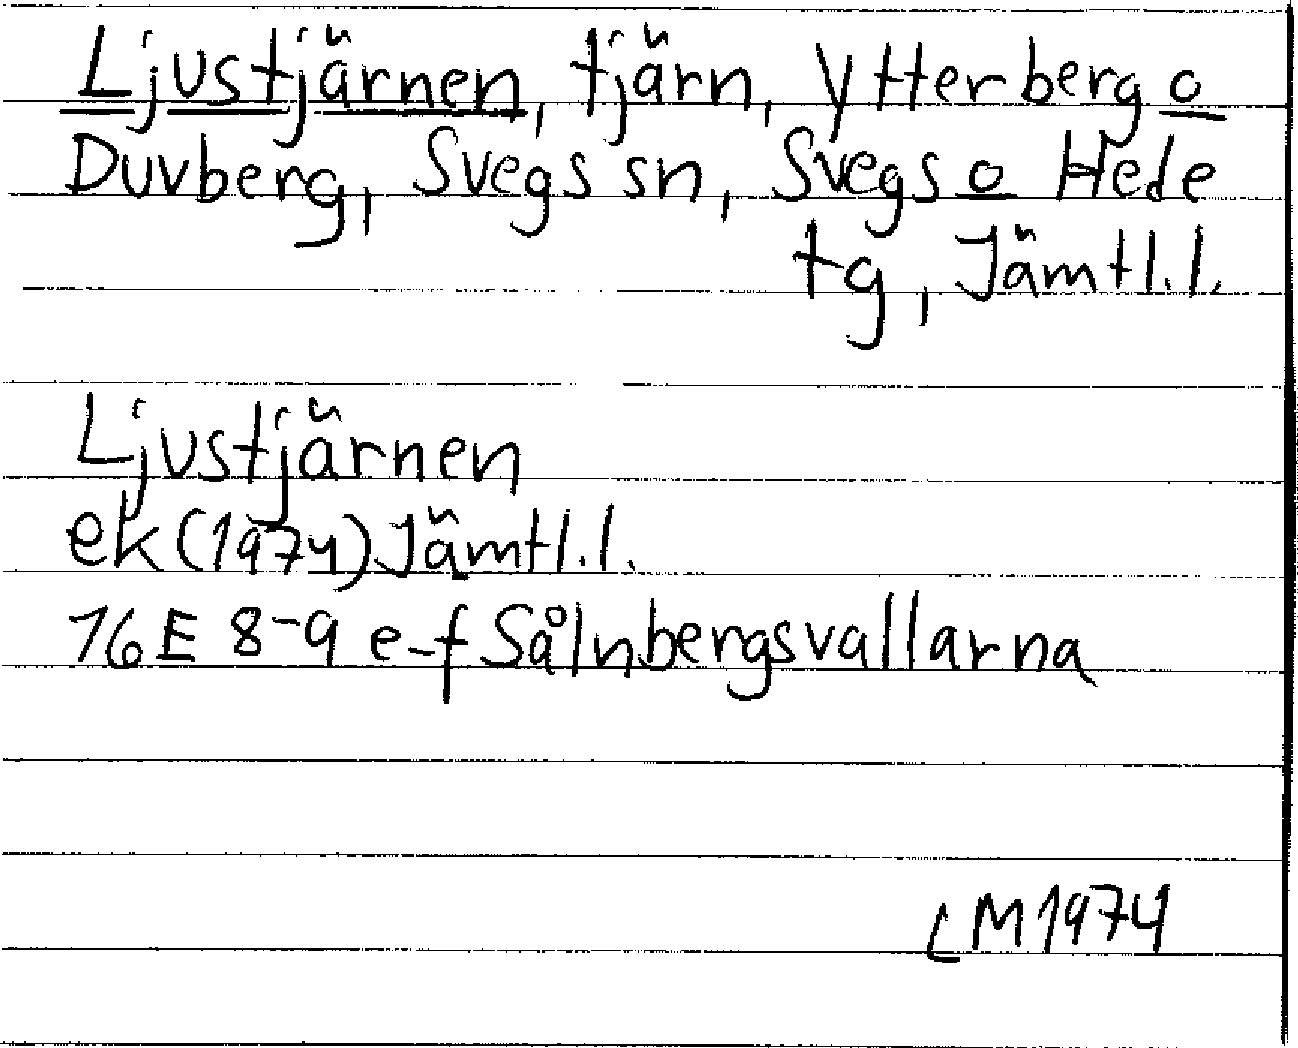 Ljustjärnen, tjärn, Ytterberg o
Duvberg, Svegs sn, Svegs o Hede
tg, Jämtl.l.
Ljustjärnen
ek (1974) Jämtl.l.
16E 8-9 e-f Sålnbergsvallarna
LM 1974